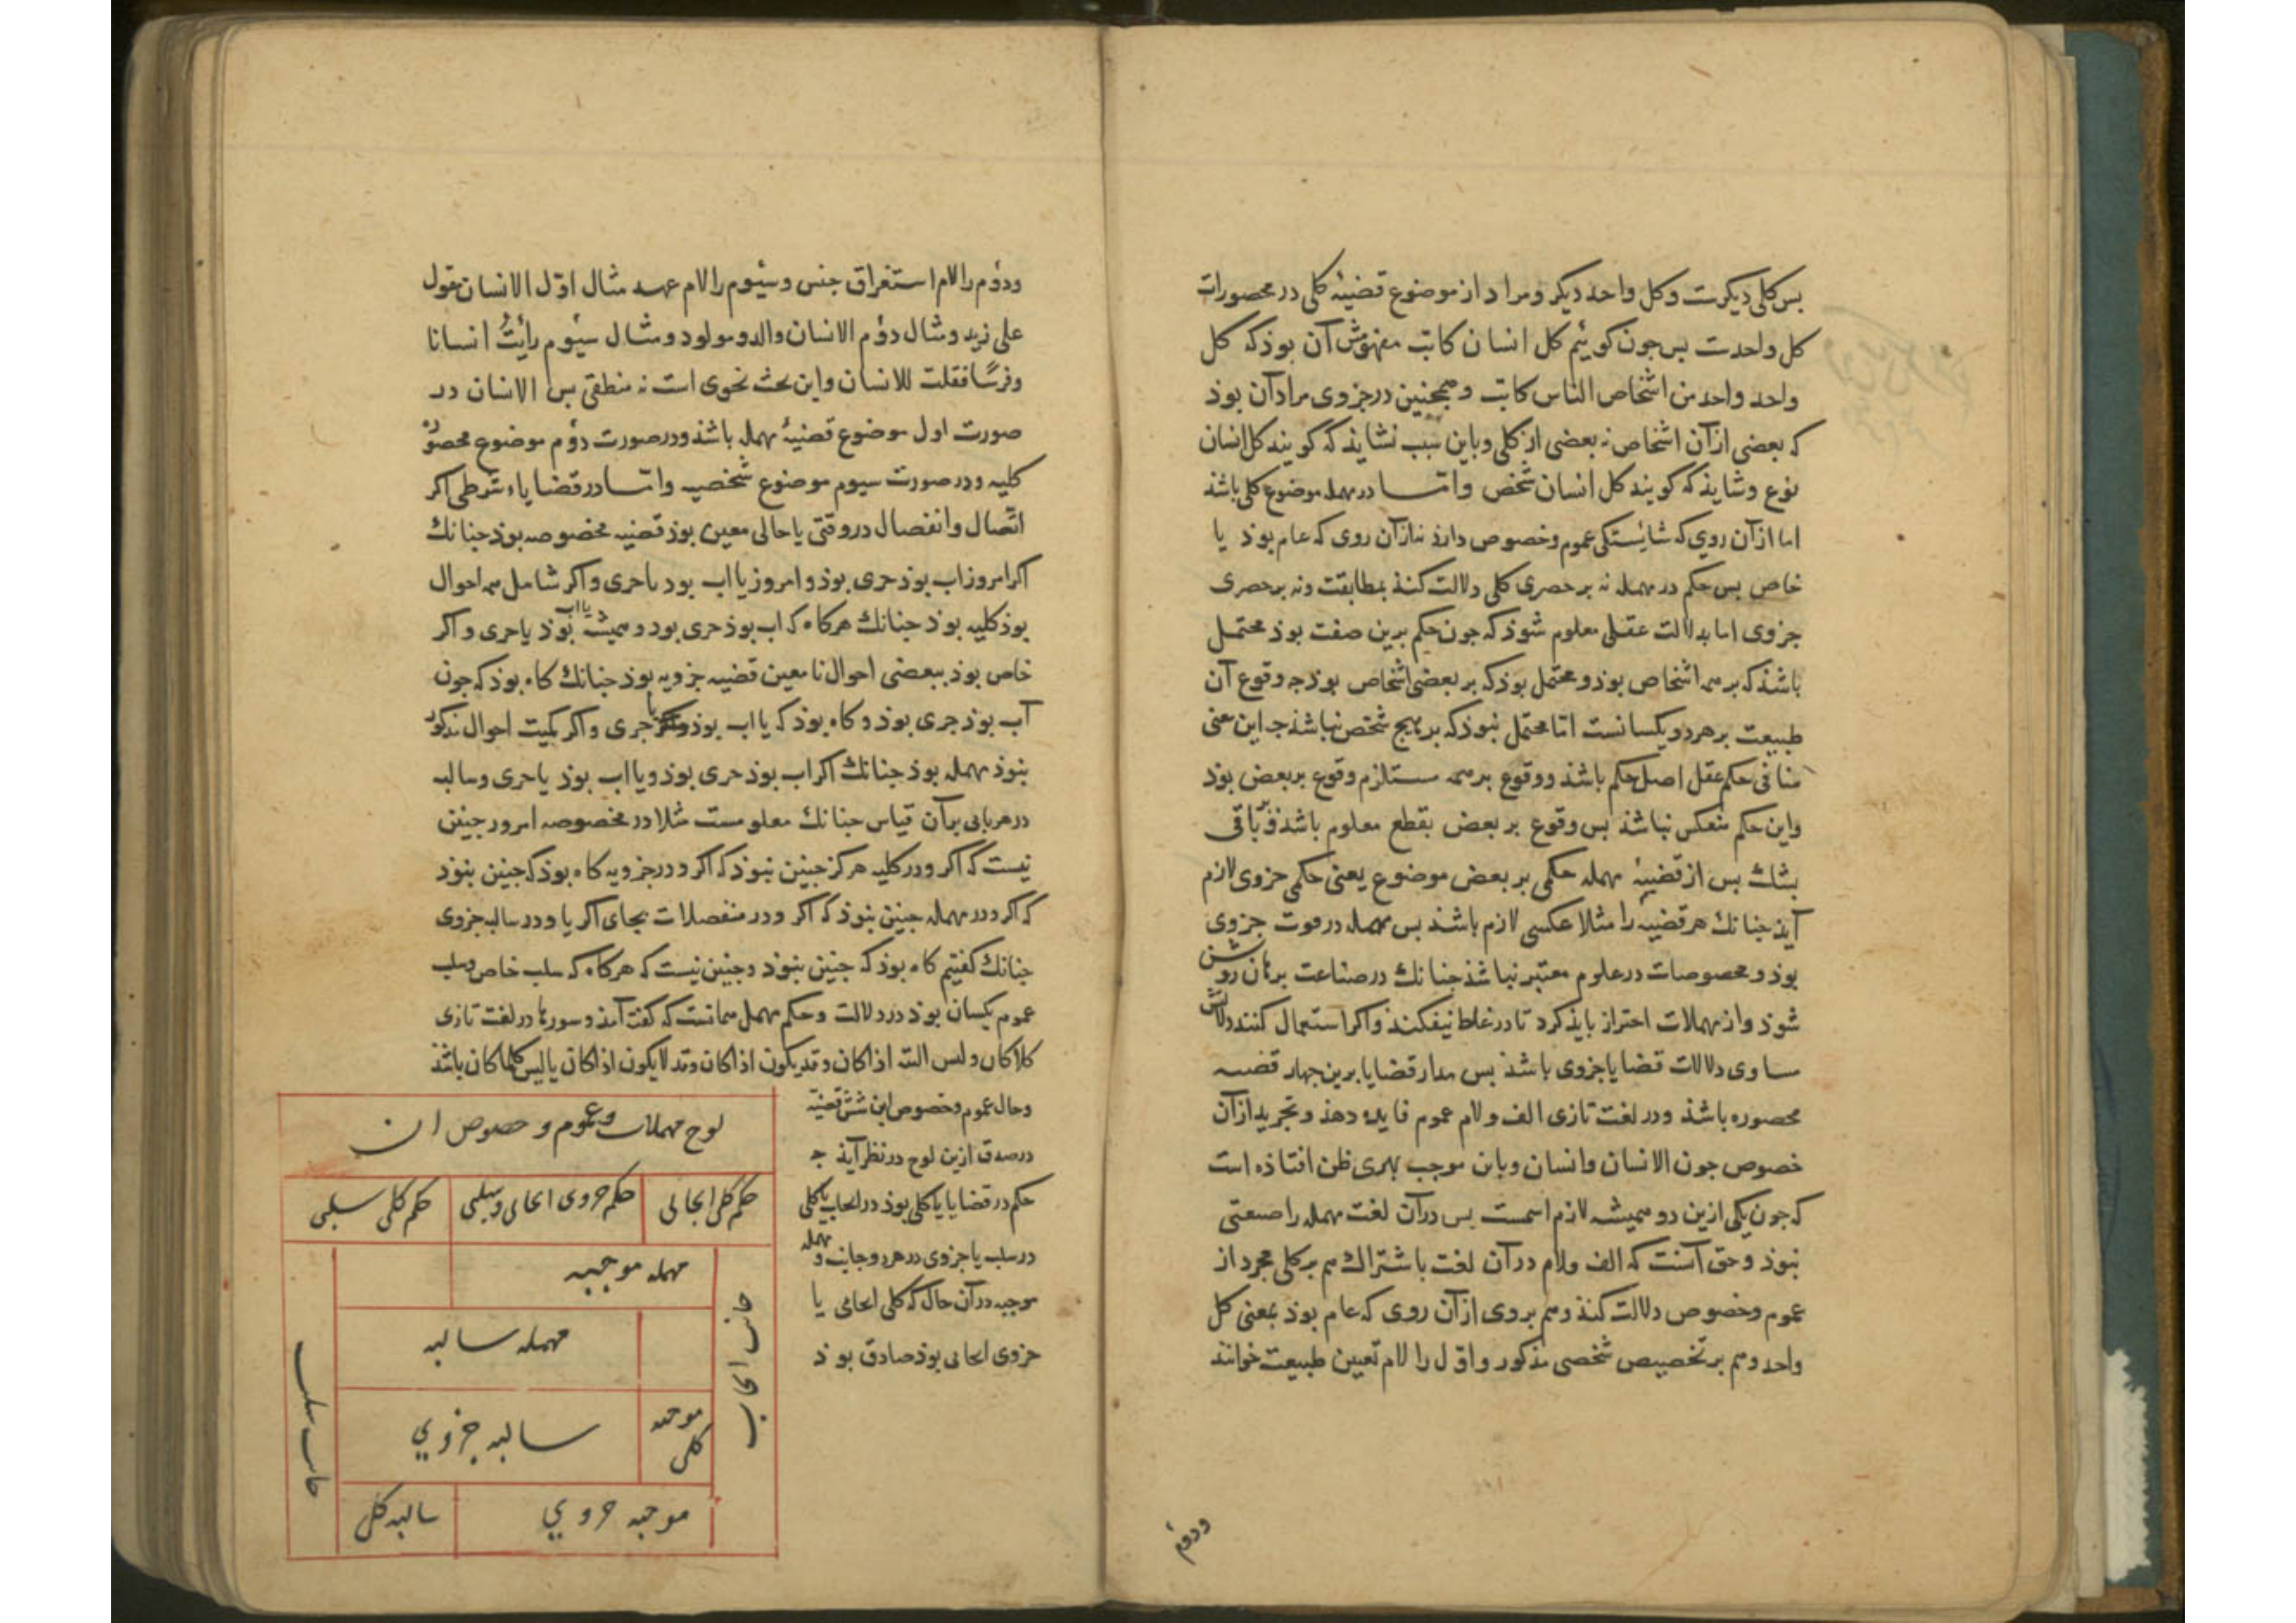 بس کلی دیکرست وکل واحد دیکر ومراد از موضوع قضیهٔ کلی در محصورات
کل واحدست بس جون کوئیم کل انسان کاتب مفهومش آن بوذ که کل
واحد واحد من اشخاص الناس کاتب وهمجنین در جزوی مراد آن بوذ
که بعضی از آن اشخاص نه بعضی از کلی وباین سبب نشایذ که کویند کل انسان
نوع وشایذ که کویند کل انسان شخص واما در مهمله موضوع کلی باشذ
اما از آن روی که شایستکی عموم وخصوص دارذ نه از آن روی که عام بوذ یا
خاص بس حکم در مهمله نه بر حصری کلی دلالت کنذ بمطابقت ونه بر حصری
جزوی اما بدلالت عقلی معلوم شوذ که جون حکم برین صفت بوذ محتمل
باشذ که بر همه اشخاص بوذ ومحتمل بوذ که بر بعضی اشخاص بوذ جه وقوع آن
طبیعت بر هر دو یکسانست اما محتمل نبوذ که بر هیج شخص نباشذ جه این معنی
منافی حکم عقل اصل حکم باشذ ووقوع بر همه مستلزم وقوع بر بعض بوذ
واین حکم منعکس نباشذ بس وقوع بر بعض بقطع معلوم باشذ وبر باقی
بشک بس از قضیهٔ مهمله حکمی بر بعض موضوع یعنی حکمی جزوی لازم
آیذ جنانک هر قضیه را مثلا عکسی لازم باشذ بس مهمله در قوت جزوی
بوذ ومخصوصات در علوم معتبر نباشذ جنانک در صناعت برهان روشن
شوذ واز مهملات احتراز بایذ کرد تا در غلط نیفکند واکر استعمال کنند دلالتش
مساوی دلالات قضایا جزوی باشذ بس مدار قضایا برین جهار قضیه
محصوره باشذ ودر لغت تازی الف ولام عموم فایده دهذ وتجرید از آن
خصوص جون الانسان وانسان وباین موجب بهری ظن افتاذه است
که جون یکی ازین دو همیشه لازم اسمست بس در آن لغت مهمله را صیغتی
نبوذ وحق آنست که الف ولام در آن لغت باشتراک هم بر کلی مجرد از
عموم وخصوص دلالت کنذ وهم بروی از آن روی که عام بوذ بمعنی کل
واحد وهم بر تخصیص شخصی مذکور واول را لام تعیین طبیعت خوانند
ودوم
ودوم را لام استغراق جنس وسیوم را لام عهد مثال اول الانسان مقول
علی زید ومثال دوم الانسان والد ومولود ومثال سیوم رأیتُ انسانا
وفرسًا فقلت للانسان واین بحث نحوی است نه منطقی بس الانسان در
صورت اول موضوع قضیهٔ مهمله باشذ ودر صورت دوم موضوع محصوره
کلیه ودر صورت سیوم موضوع شخصیه واما در قضایاء شرطی اکر
اتصال وانفصال در وقتی یا حالی معین بوذ قضیه مخصوصه بوذ جنانک
اکر امروز اب بوذ جری بوذ وامروز یا اب بود یا جری واکر شامل همه احوال
بوذ کلیه بوذ جنانک هرکاه که اب بوذ جری بود وهمیشه یا اب بوذ یا جری واکر
خاص بوذ ببعضی احوال نامعین قضیه جزویه بوذ جنانک کاه بوذ که جون
آب بوذ جری بوذ وکاه بوذ که یا اب بوذ یا جری واکر کمیت احوال مذکور
نبوذ مهمله بوذ جنانک اکر اب بوذ جری بوذ ویا اب بوذ یا جری وسالبه
در هر بابی بر آن قیاس جنانک معلومست مثلا در مخصوصه امروز جنین
نیست که اکر ودر کلیه هرکز جنین نبوذ که اکر ودر جزویه کاه بوذ که جنین نبوذ
که اکر ودر مهمله جنین نبوذ که اکر ودر منفصلات بجای اکر یا ودر سالبه جزوی
جنانک کفتیم کاه بوذ که جنین نبوذ وجنین نیست که هرکاه که سلب خاص وسلب
عموم یکسان بوذ در دلالت وحکم مهمل همانست که کفته آمذ وسورها در لغت تازی
کلما کان ولیس البته اذا کان وقد یکون اذا کان وقد لا یکون اذا کان یا لیس کلما کان باشذ
وحال عموم وخصوص این شش قضیه
در صدق ازین لوح در نظر آیذ جه
حکم در قضایا یا کلی بوذ در ایجاب یا کلی
در سلب یا جزوی در هر دو جانب ومهمله
موجبه در آن حال که کلی ایجابی یا
جزوی ایجابی بوذ صادق بوذ
لوح مهملات وعموم وخصوص ان
حکم کلی ایجابی
حکم جزوی ایجابی وسلبی
حکم کلی سلبی
مهمله موجبه
مهمله سالبه
جانب ایجاب
جانب سلب
موجبه کلی
سالبه جزوی
موجبه جزوی
سالبه کلی